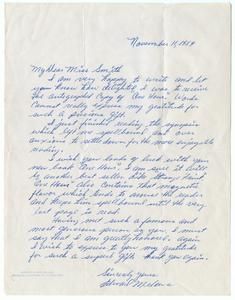 November 11, 1959
My Dear Miss Smith
I am very happy to write and let
you know how delighted I was to receive
the autographed Copy of One Hour. Words
Cannot really express my gratitude for
such a precious gift.
I just finished reading the synopsis
which left me spellbound and over
anxious to settle down for the more enjoyable
reading.
I wish you loads of luck with your
new book One Hour. I am sure it will
be another best seller like Strange Fruit.
One Hour also contains that magnetic
flavor which tends to arouse the reader
and keeps him spellbound until the very
last page is read.
Having met such a famous and
most generous person as you, I must
say that I am greatly honored. Again
I wish to express to you my gratitude
for such a superb gift. Thank you again.
Sincerely yours
Edward